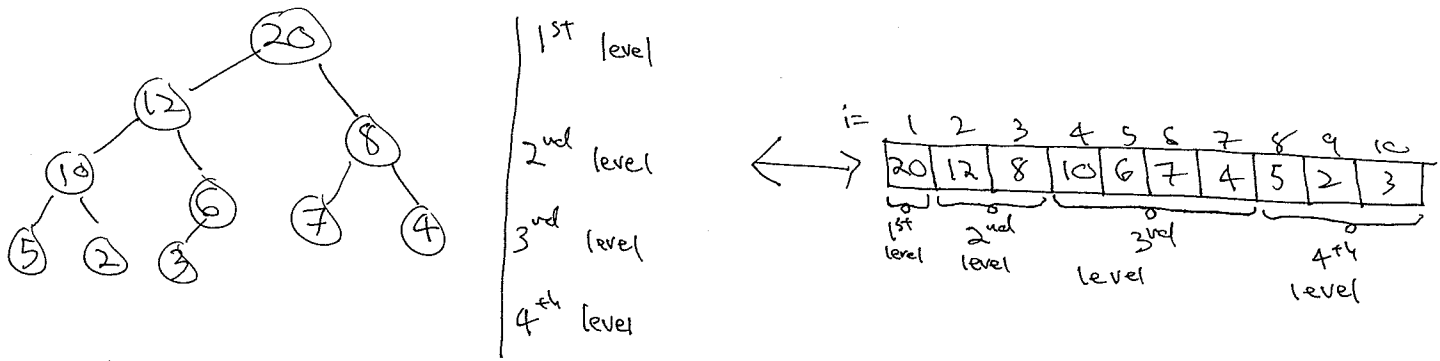 20
12
8
10
6
7
4
5
2
3
1st level
2nd level
3rd level
4th level
i= 1 2 3 4 5 6 7 8 9 10
20 12 8 10 6 7 4 5 2 3
1st level
2nd level
3rd level
4th level